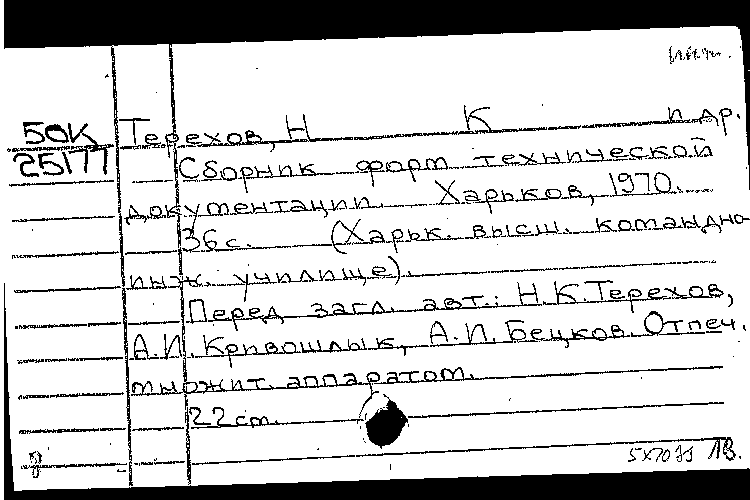 50К Терехов, Н К и др.
25177 Сборник форм технической
документации. Харьков, 1970.
36с. (Харьк. высш. командно-
инж. училище).
Перед загл. авт.: Н.К.Терехов,
А.И.Кривошлык, А.И.Бецков. Отпеч.
множит. аппаратом.
22 см.